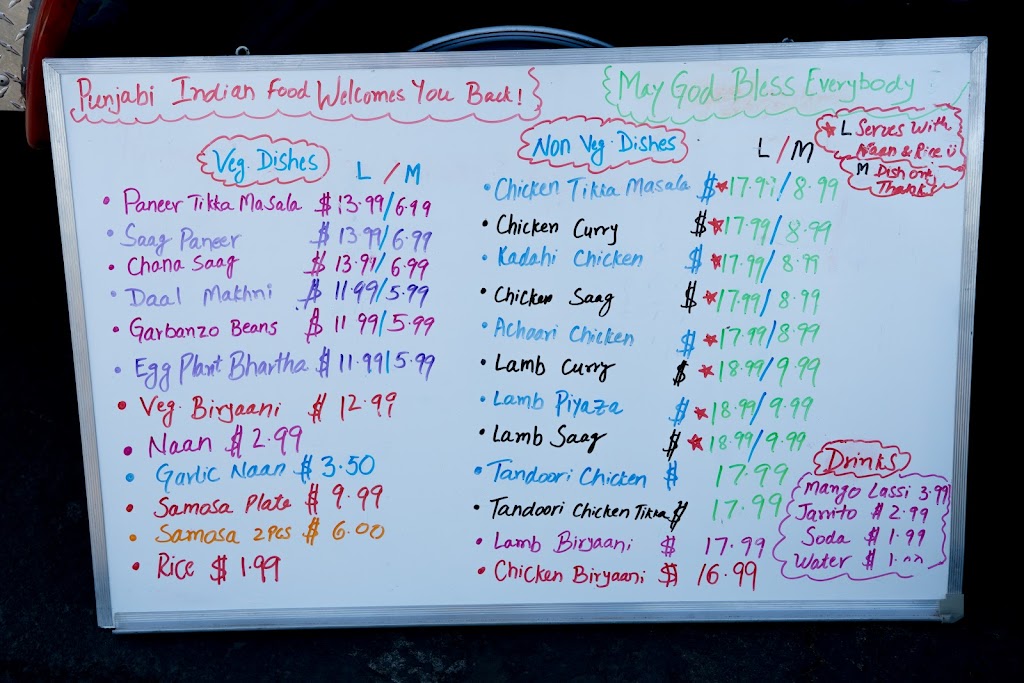 Punjabi Indian Food Welcomes You Back!
May God Bless Everybody
Veg. Dishes L / M
• Paneer Tikka Masala $ 13.99/6.99
• Saag Paneer $ 13.99/6.99
• Chana Saag $ 13.99/6.99
• Daal Makhni $ 11.99/5.99
• Garbanzo Beans $ 11.99/5.99
• Egg Plant Bhartha $ 11.99/5.99
• Veg. Biryaani $ 12.99
• Naan $ 2.99
• Garlic Naan $ 3.50
• Samosa Plate $ 9.99
• Samosa 2 PCS $ 6.00
• Rice $ 1.99
Non Veg. Dishes L / M
• Chicken Tikka Masala $ ★17.99/8.99
• Chicken Curry $ ★17.99/8.99
• Kadahi Chicken $ ★17.99/8.99
• Chicken Saag $ ★17.99/8.99
• Achaari Chicken $ ★17.99/8.99
• Lamb Curry $ ★18.99/9.99
• Lamb Piyaza $ ★18.99/9.99
• Lamb Saag $ ★18.99/9.99
• Tandoori Chicken $ 17.99
• Tandoori Chicken Tikka $ 17.99
• Lamb Biryaani $ 17.99
• Chicken Biryaani $ 16.99
★ L Serves With
Naan & Rice
M Dish only
Drinks
Mango Lassi 3.99
Jarrito $ 2.99
Soda $ 1.99
Water $